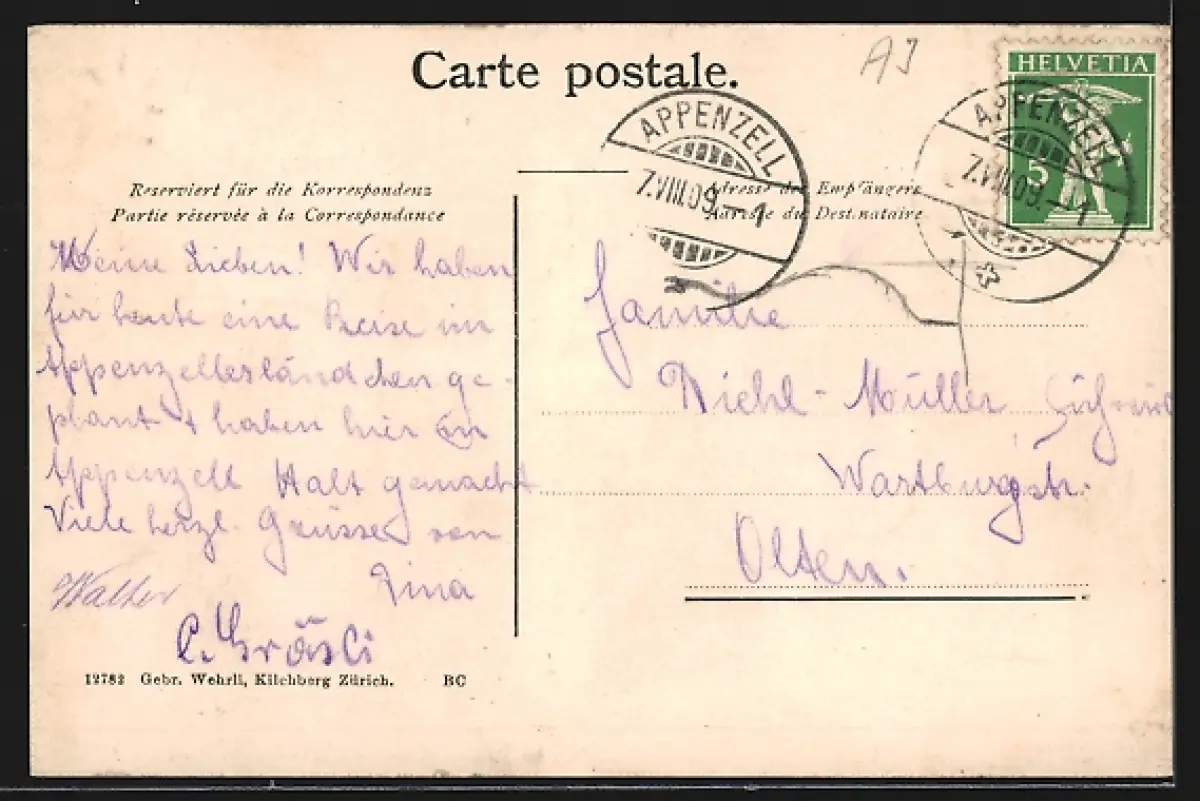 Carte postale.
AJ
HELVETIA
5
APPENZELL
7.VIII.09.–1
APPENZELL
7.VIII.09.–1
Reserviert für die Korrespondenz
Partie réservée à la Correspondance
Adresse des Empfängers
Adresse du Destinataire
Meine Lieben! Wir haben
für heute eine Reise im
Appenzellerländchen ge-
plant & haben hier in
Appenzell Halt gemacht
Viele herzl. Grüsse von
Lina
Walter
Familie
Diehl-Müller
Wartburgstr.
Olten.
12782 Gebr. Wehrli, Kilchberg Zürich. BC